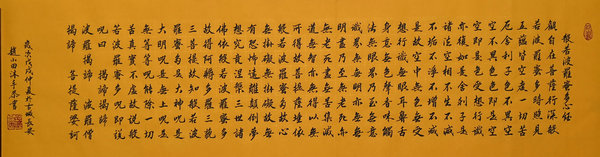 般若波羅蜜多心经
觀自在菩薩行深般
若波羅蜜多時照見
五蘊皆空度一切苦
厄舍利子色不異空
空不異色色即是空
空即是色受想行識
亦復如是舍利子是
諸法空相不生不滅
不垢不淨不增不減
是故空中無色無受
想行識無眼耳鼻舌
身意無色聲香味觸
法無眼界乃至無意
識界無無明亦無無
明盡乃至無老死亦
無老死盡無苦集滅
道無智亦無得以無
所得故菩提薩埵依
般若波羅蜜多故心
無掛礙無掛礙故無
有恐怖遠離顛倒夢
想究竟涅槃三世諸
佛依般若波羅蜜多
故得阿耨多羅三藐
三菩提故知般若波
羅蜜多是大神咒是
大明咒是無上咒是
無等等咒能除一切
苦真實不虛故說般
若波羅蜜多咒即說
咒曰 揭諦揭諦
波羅揭諦 波羅僧
揭諦 菩提薩婆訶
歲次戊戌仲夏於古城長安
趙山田沐手恭書